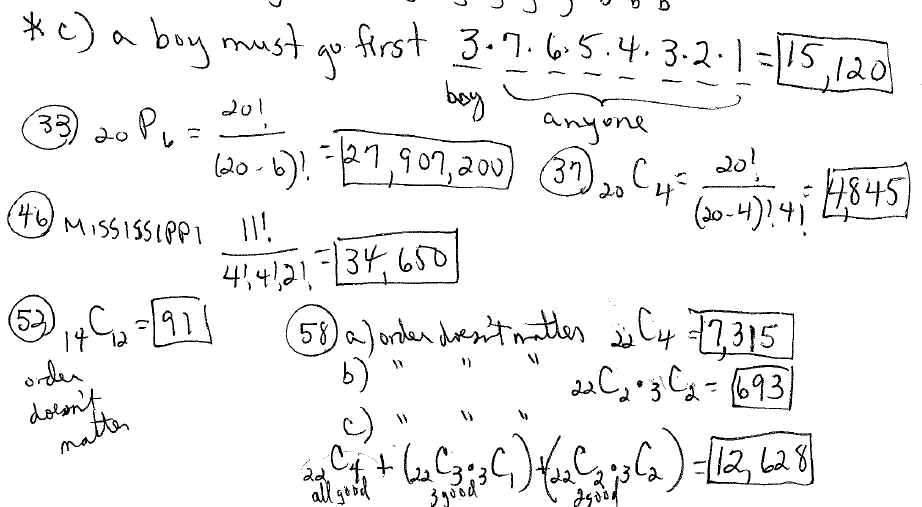 * c) a boy must go first 3·7·6·5·4·3·2·1 = 15,120
boy anyone
33) 20P6 = 20! / (20-6)! = 27,907,200
37) 20C4 = 20! / (20-4)! 4! = 4,845
46) MISSISSIPPI 11! / 4!,4!,2! = 34,650
52) 14C12 = 91
order
doesn't
matter
58) a) order doesn't matter 22C4 = 7,315
b) " " " 22C2·3C2 = 693
c) " " "
22C4 + (22C3·3C1) + (22C2·3C2) = 12,628
all good 3 good 2 good